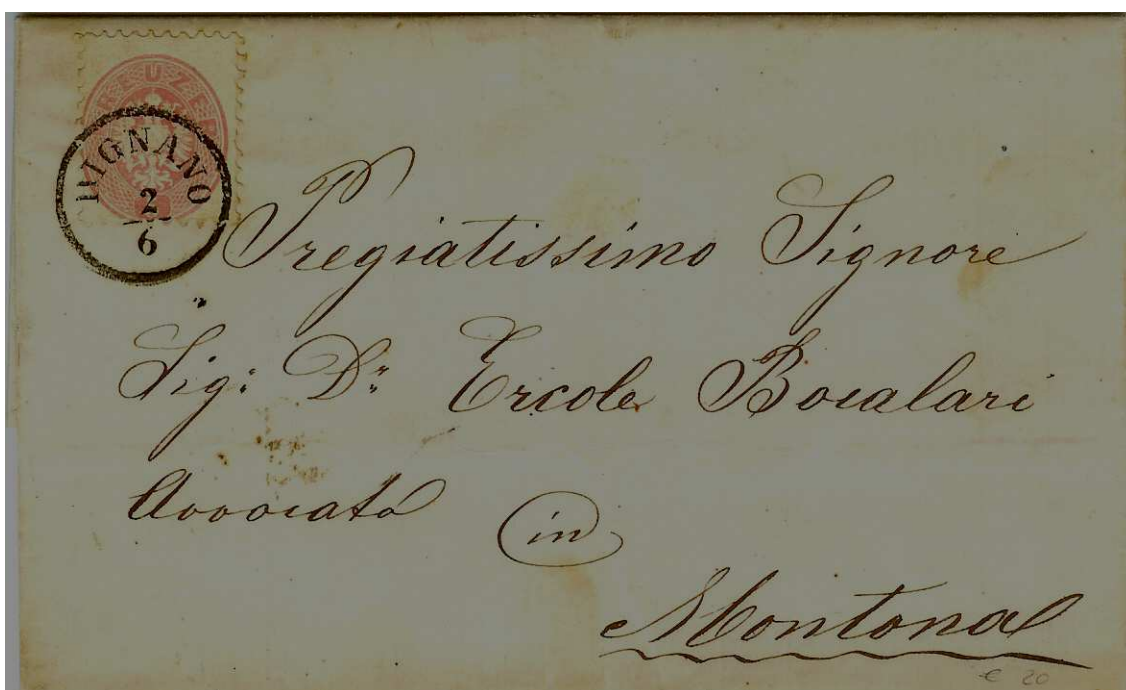 KREUZER
DIGNANO
2
6
Pregiatissimo Signore
Sig: Dr: Ercole Bocalari
Avvocato in
Montona
€ 20